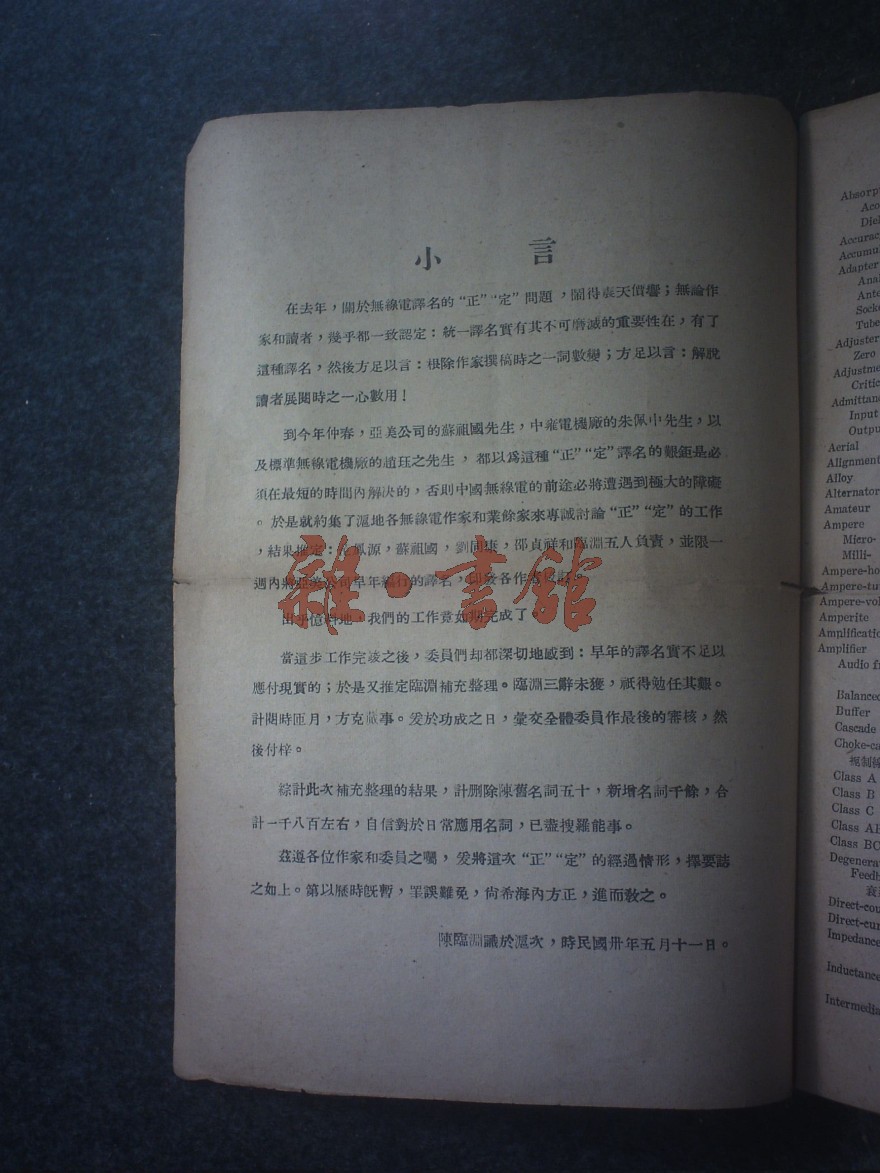 小 言
在去年，關於無線電譯名的“正”“定”問題，鬧得震天價響；無論作
家和讀者，幾乎都一致認定：統一譯名實有其不可磨滅的重要性在，有了
這種譯名，然後方足以言：根除作家撰稿時之一詞數變；方足以言：解脫
讀者展閱時之一心數用！
到今年仲春，亞美公司的蘇祖國先生，中雍電機廠的朱佩中先生，以
及標準無線電機廠的趙珏之先生，都以爲這種“正”“定”譯名的艱鉅是必
須在最短的時間內解決的，否則中國無線電的前途必將遭遇到極大的障礙
。於是就約集了滬地各無線電作家和業餘家來專誠討論“正”“定”的工作
，結果推定：鳳源，蘇祖國，劉同康，邵貞祥和臨淵五人負責，並限一
週內將亞美公司早年 行的譯名，各作
出乎億料地，我們的工作竟如期完成了
當這步工作完竣之後，委員們却都深切地感到：早年的譯名實不足以
應付現實的；於是又推定臨淵補充整理。臨淵三辭未獲，祇得勉任其艱。
計閱時匝月，方克蕆事。爰於功成之日，彙交全體委員作最後的審核，然
後付梓。
綜計此次補充整理的結果，計删除陳舊名詞五十，新增名詞千餘，合
計一千八百左右，自信對於日常應用名詞，已盡搜羅能事。
茲遵各位作家和委員之囑，爰將這次“正”“定”的經過情形，擇要誌
之如上。第以歷時旣暫，罣誤難免，尙希海內方正，進而敎之。
陳臨淵識於滬次，時民國卅年五月十一日。
雜·書館
Adapter
Zero
Input
Aerial
Alignment
Alloy
Alternator
Amateur
Ampere
Micro-
Milli-
Amperite
Amplifier
Buffer
Cascade
Class A
Class B
Class C